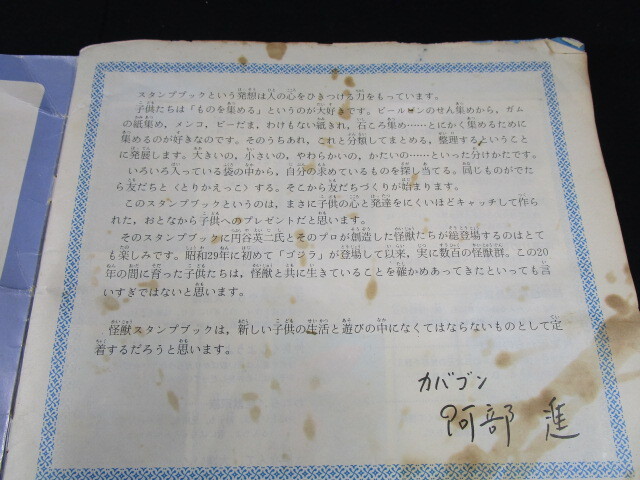 スタンプブックという発想は人の心をひきつける力をもっています。
子供たちは「ものを集める」というのが大好きです。ビールビンのせん集めから、ガム
の紙集め、メンコ、ビーだま、わけもない紙きれ、石ころ集め……とにかく集めるために
集めるのが好きなのです。そのうちあれ、これと分類してまとめる、整理するということ
に発展します。大きいの、小さいの、やわらかいの、かたいの……といった分けかたです。
いろいろ入っている袋の中から、自分の求めているものを探し当てる。同じものがでた
ら友だちと〈とりかえっこ〉する。そこから友だちづくりが始まります。
このスタンプブックというのは、まさに子供の心と発達をにくいほどキャッチして作ら
れた、おとなから子供へのプレゼントだと思います。
そのスタンプブックに円谷英二氏とそのプロが創造した怪獣たちが総登場するのはとて
も楽しみです。昭和29年に初めて「ゴジラ」が登場して以来、実に数百の怪獣群。この20
年の間に育った子供たちは、怪獣と共に生きていることを確かめあってきたといっても言
いすぎではないと思います。
怪獣スタンプブックは、新しい子供の生活と遊びの中になくてはならないものとして定
着するだろうと思います。
カバゴン
阿部 進